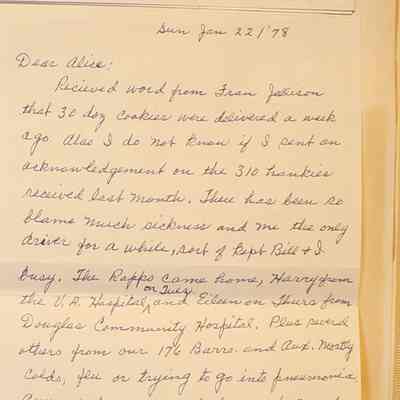 Sun Jan 22/'78
Dear Alice:
Recieved word from Fran
that 30 doz cookies were delivered a week
ago. Also I do not know if I sent an
acknowledgement on the 310 hankies
received last month. There has been so
blame much sickness and me the only
driver for a while, sort of kept Bill & I
busy. The Rapps came home, Harry from
the V.A. Hospital, on Tues and Eileen on Thurs from
Douglas Community Hospital. Plus several
others from our 176 Barrs. and Aux. Mostly
colds, flu or trying to go into pneumonia,